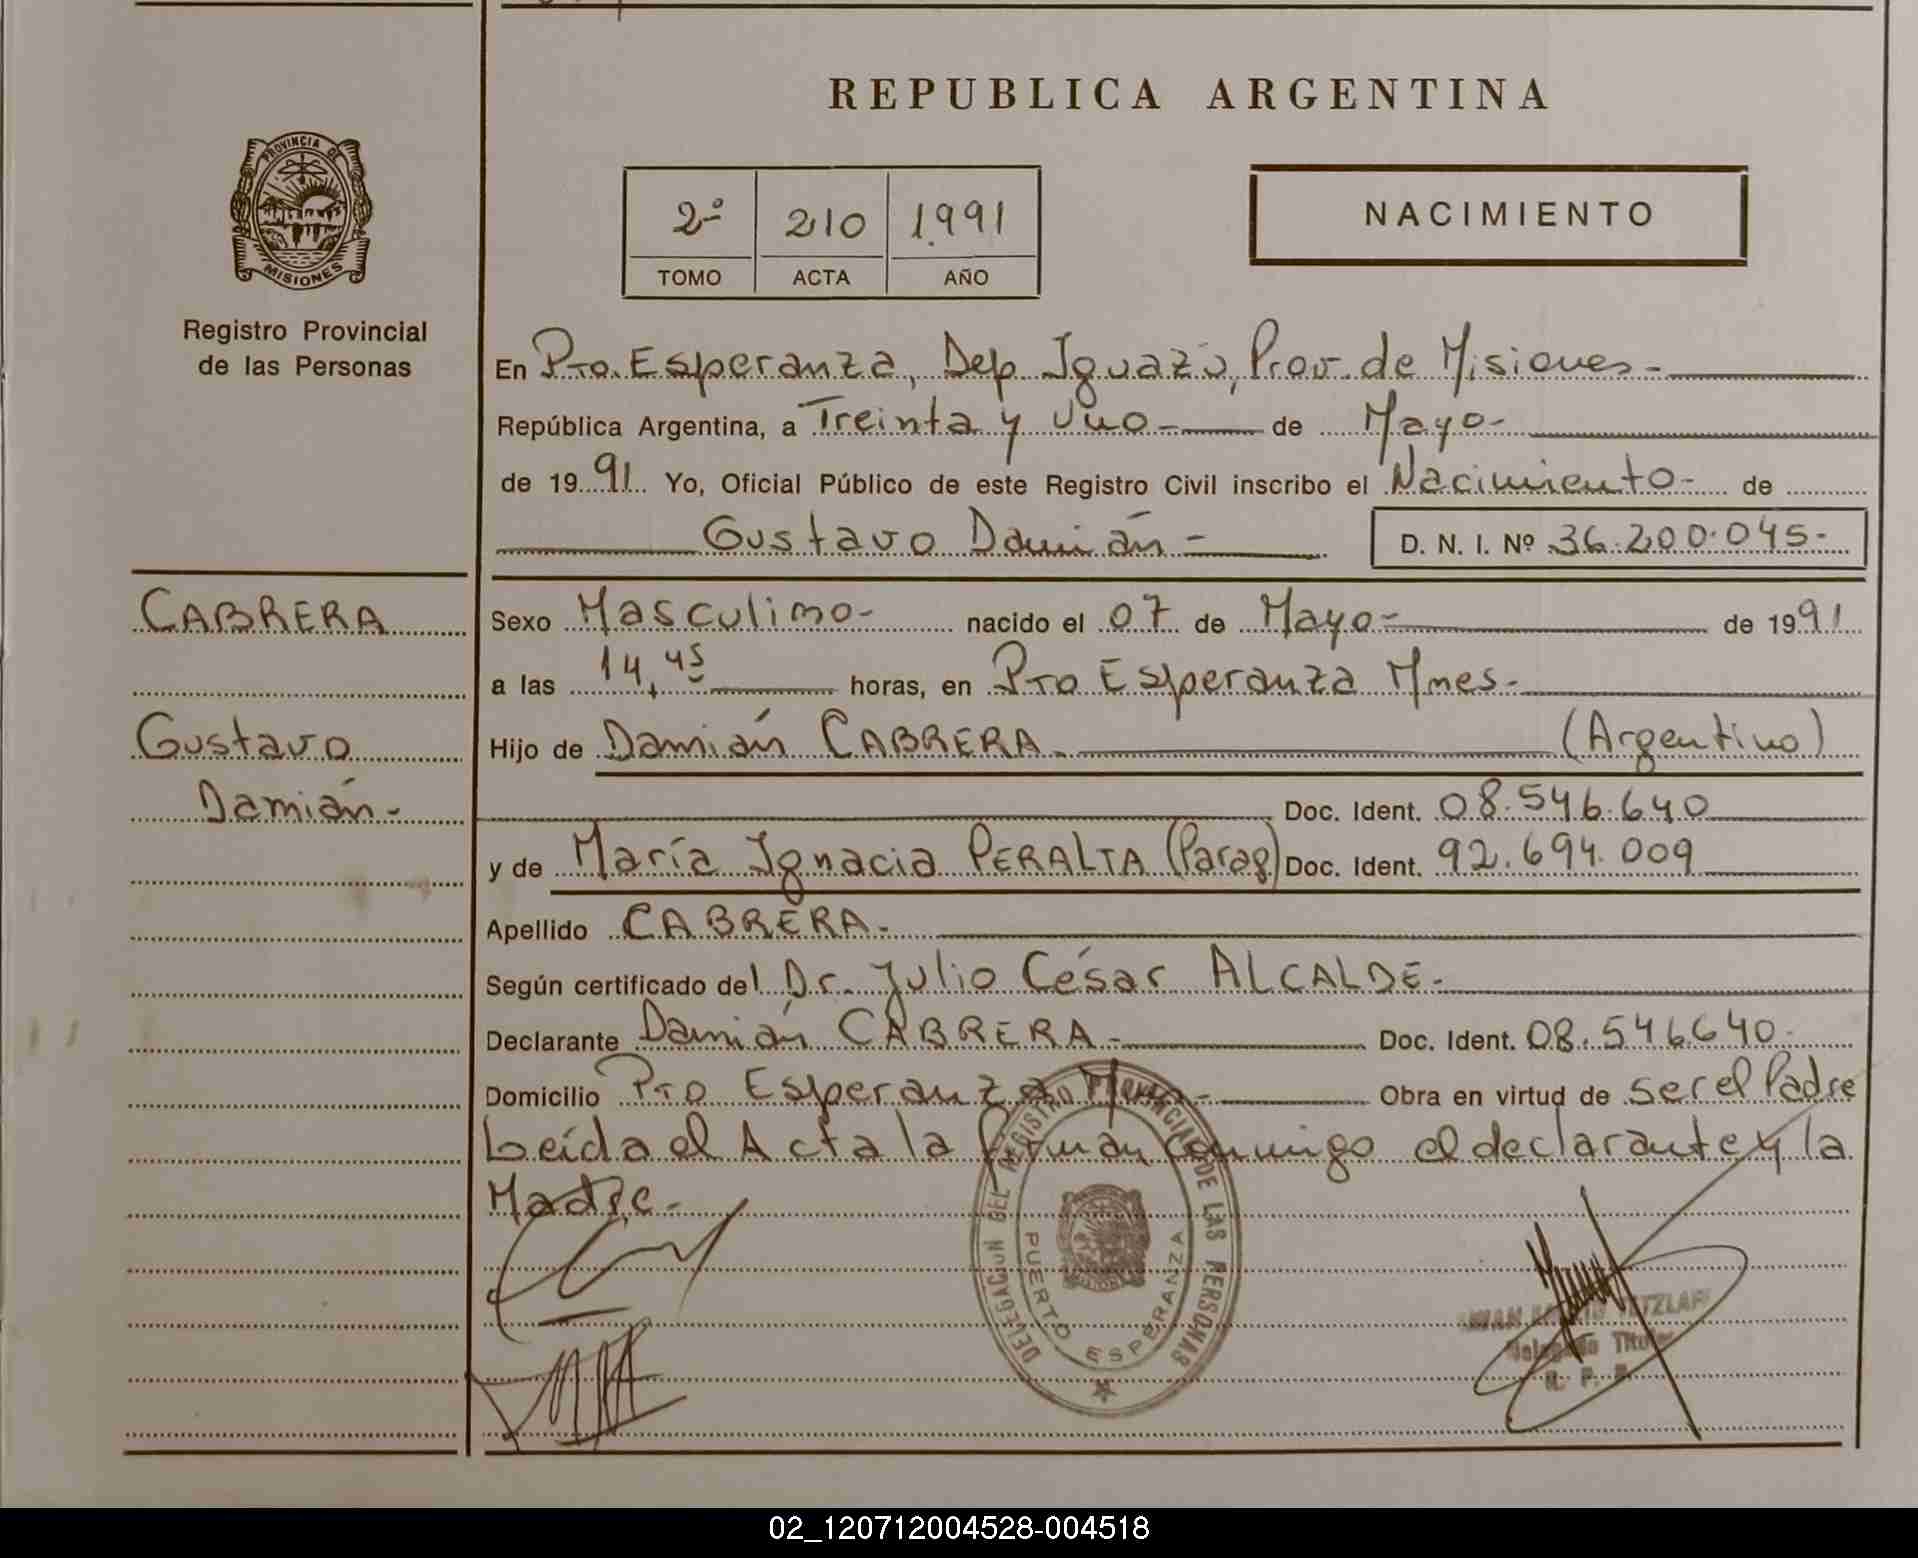 REPUBLICA ARGENTINA
PROVINCIA DE
MISIONES
Registro Provincial
de las Personas
2º 210 1.991
TOMO ACTA AÑO
NACIMIENTO
En Pto. Esperanza, Dep Iguazú, Prov. de Misiones-
República Argentina, a Treinta y Uno- de Mayo-
de 1991. Yo, Oficial Público de este Registro Civil inscribo el Nacimiento- de
Gustavo Damián-
D. N. I. Nº 36.200.045-
CABRERA
Gustavo
Damián-
Sexo Masculino- nacido el 07 de Mayo- de 1991
a las 14,45 horas, en Pto Esperanza Mnes-
Hijo de Damián CABRERA- (Argentino)
Doc. Ident. 08.546.640
y de María Ignacia PERALTA (Parag) Doc. Ident. 92.694.009
Apellido CABRERA-
Según certificado del Dr. Julio César ALCALDE-
Declarante Damián CABRERA- Doc. Ident. 08.546640-
Domicilio Pto Esperanza Obra en virtud de ser el Padre
Leída el Acta la firman conmigo el declarante y la
Madre-
DELEGACION DEL REGISTRO PROVINCIAL DE LAS PERSONAS
PUERTO ESPERANZA
Titular
02_120712004528-004518